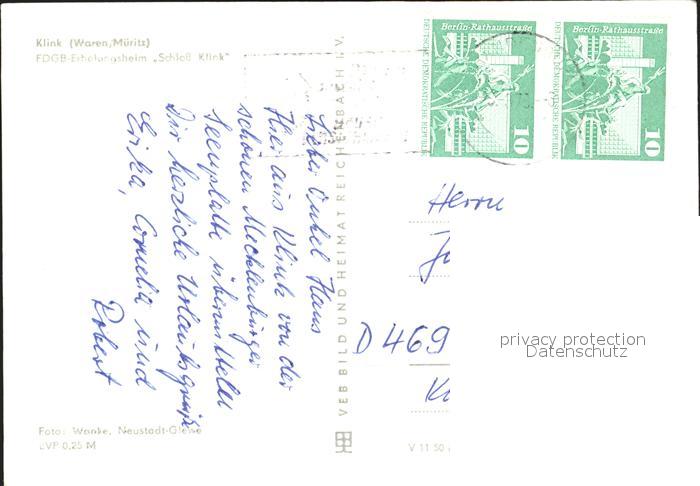 Klink (Waren/Müritz)
FDGB-Erholungsheim „Schloß Klink"
Lieber Onkel Hans
Hier aus Klink von der
schönen Mecklenburger
Seenplatte übermitteln
Dir herzliche Urlaubsgrüße
Erika, Cornelia und
Robert
Foto: Wanke, Neustadt-Glewe
EVP 0,25 M
VEB BILD UND HEIMAT REICHENBACH I. V.
V 11 50
Berlin-Rathausstraße
DEUTSCHE DEMOKRATISCHE REPUBLIK
10
Berlin-Rathausstraße
DEUTSCHE DEMOKRATISCHE REPUBLIK
10
Herrn
D 469
privacy protection
Datenschutz